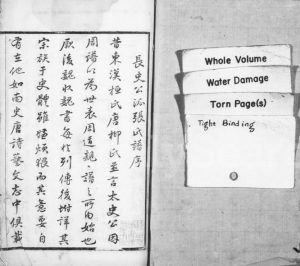 長史公派張氏譜序
昔東漢桓氏唐柳氏並言太史公因
周譜以為世表周道親譜之所由始也
厥後魏收魏書每於列傳後附詳其
宗族于史體雖嫌煩猥而其意要自
有在他如南史唐詩藝文志中俱載
Whole Volume
Water Damage
Torn Page(s)
Tight Binding